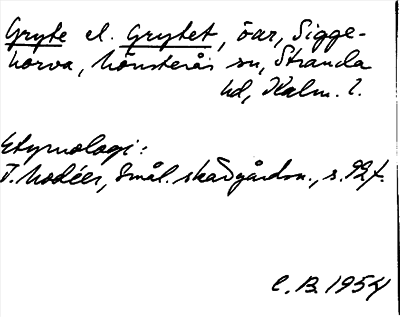 Gryte el. Grytet, öar, Sigge-
horva, Mönsterås sn, Stranda
hd, Kalm. l.
Etymologi:
I. Modéer, Smål. skärgårdsn., s. 92 f.
C. B. 1954